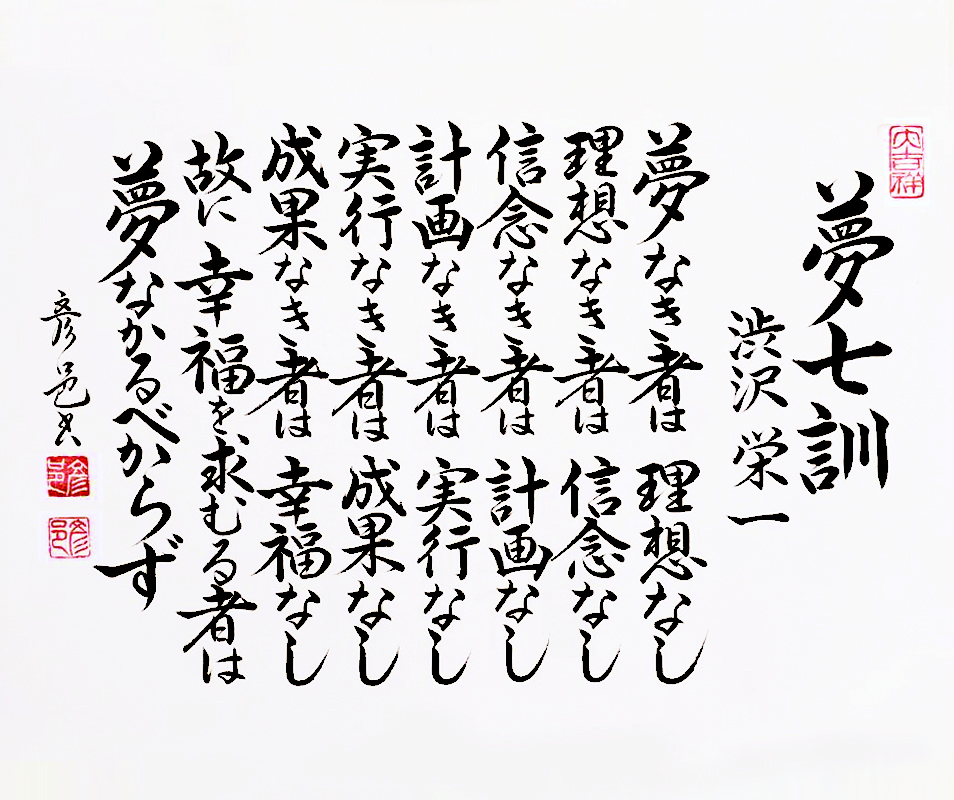 大吉祥
夢七訓
渋沢栄一
夢なき者は 理想なし
理想なき者は 信念なし
信念なき者は 計画なし
計画なき者は 実行なし
実行なき者は 成果なし
成果なき者は 幸福なし
故に 幸福を求むる者は
夢なかるべからず
彦邑書
彦邑
彦邑